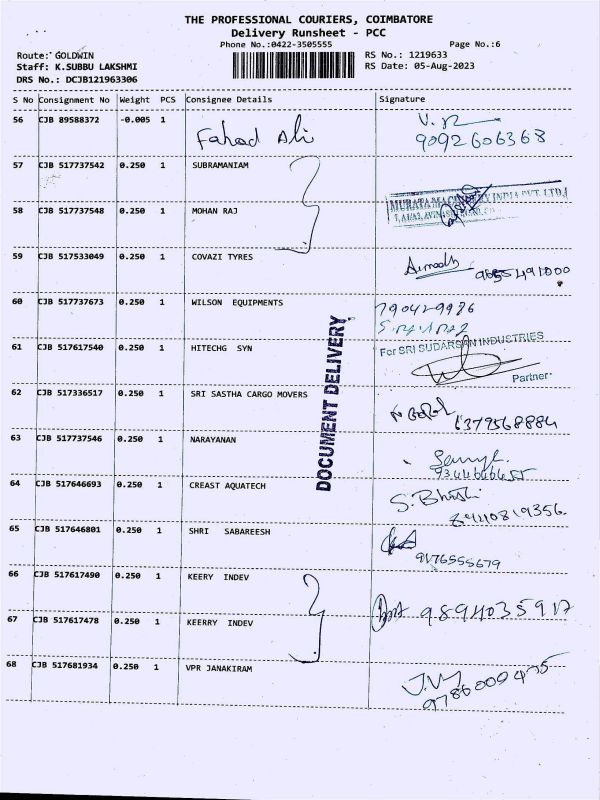 THE PROFESSIONAL COURIERS, COIMBATORE
Delivery Runsheet - PCC
Phone No.:0422-3505555 Page No.:6
Route: GOLDWIN RS No.: 1219633
Staff: K.SUBBU LAKSHMI RS Date: 05-Aug-2023
DRS No.: DCJB121963306
S No Consignment No Weight PCS Consignee Details Signature
56 CJB 89588372 -0.005 1 Fahad Ali
9092606368
57 CJB 517737542 0.250 1 SUBRAMANIAM
MURATA MACHINERY INDIA PVT. LTD.,
58 CJB 517737548 0.250 1 MOHAN RAJ
59 CJB 517533049 0.250 1 COVAZI TYRES
60 CJB 517737673 0.250 1 WILSON EQUIPMENTS
61 CJB 517617540 0.250 1 HITECHG SYN For SRI SUDARSAN INDUSTRIES
Partner
62 CJB 517336517 0.250 1 SRI SASTHA CARGO MOVERS
6379568884
DOCUMENT DELIVERY
63 CJB 517737546 0.250 1 NARAYANAN
64 CJB 517646693 0.250 1 CREAST AQUATECH
65 CJB 517646801 0.250 1 SHRI SABAREESH
9176555679
66 CJB 517617490 0.250 1 KEERY INDEV
9894035917
67 CJB 517617478 0.250 1 KEERRY INDEV
68 CJB 517681934 0.250 1 VPR JANAKIRAM
9786009475